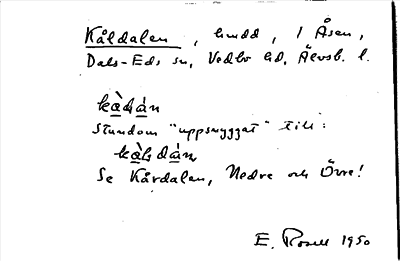 Kåldalen, hmdd, i Åsen,
Dals-Eds sn, Vedbo hd, Älvsb. l.
kàdán
stundom "uppsnyggat" till:
kàldán
Se Kårdalen, Nedre och Övre!
E. Rosell 1950